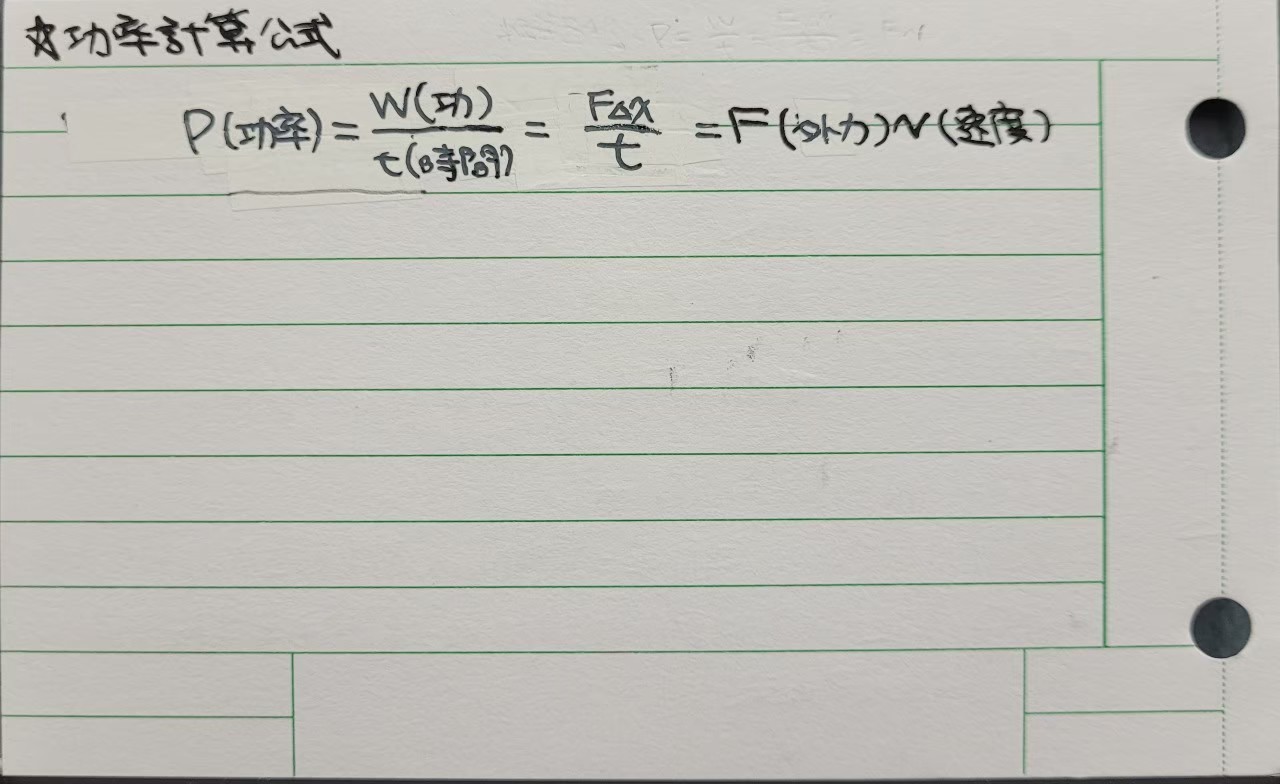 ☆功率計算公式
P(功率) = W(功)/t(時間) = FΔx/t = F(外力)v(速度)